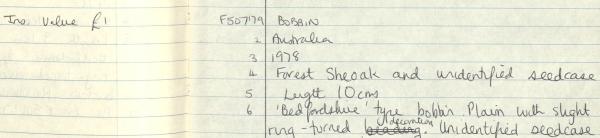 Ins. Value £1 F507179 BOBBIN
2 Australia
3 1978
4 Forest Sheoak and unidentified seedcase
5 Length 10cms
6 'Bedfordshire' type bobbin. Plain with slight
decoration
ring-turned beading. Unidentified seedcase